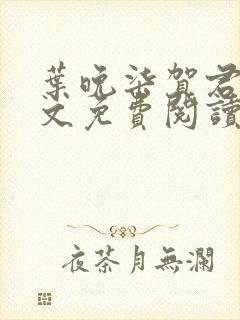 葉晚柒賀君
文免費閱讀
夜茶月無瀾